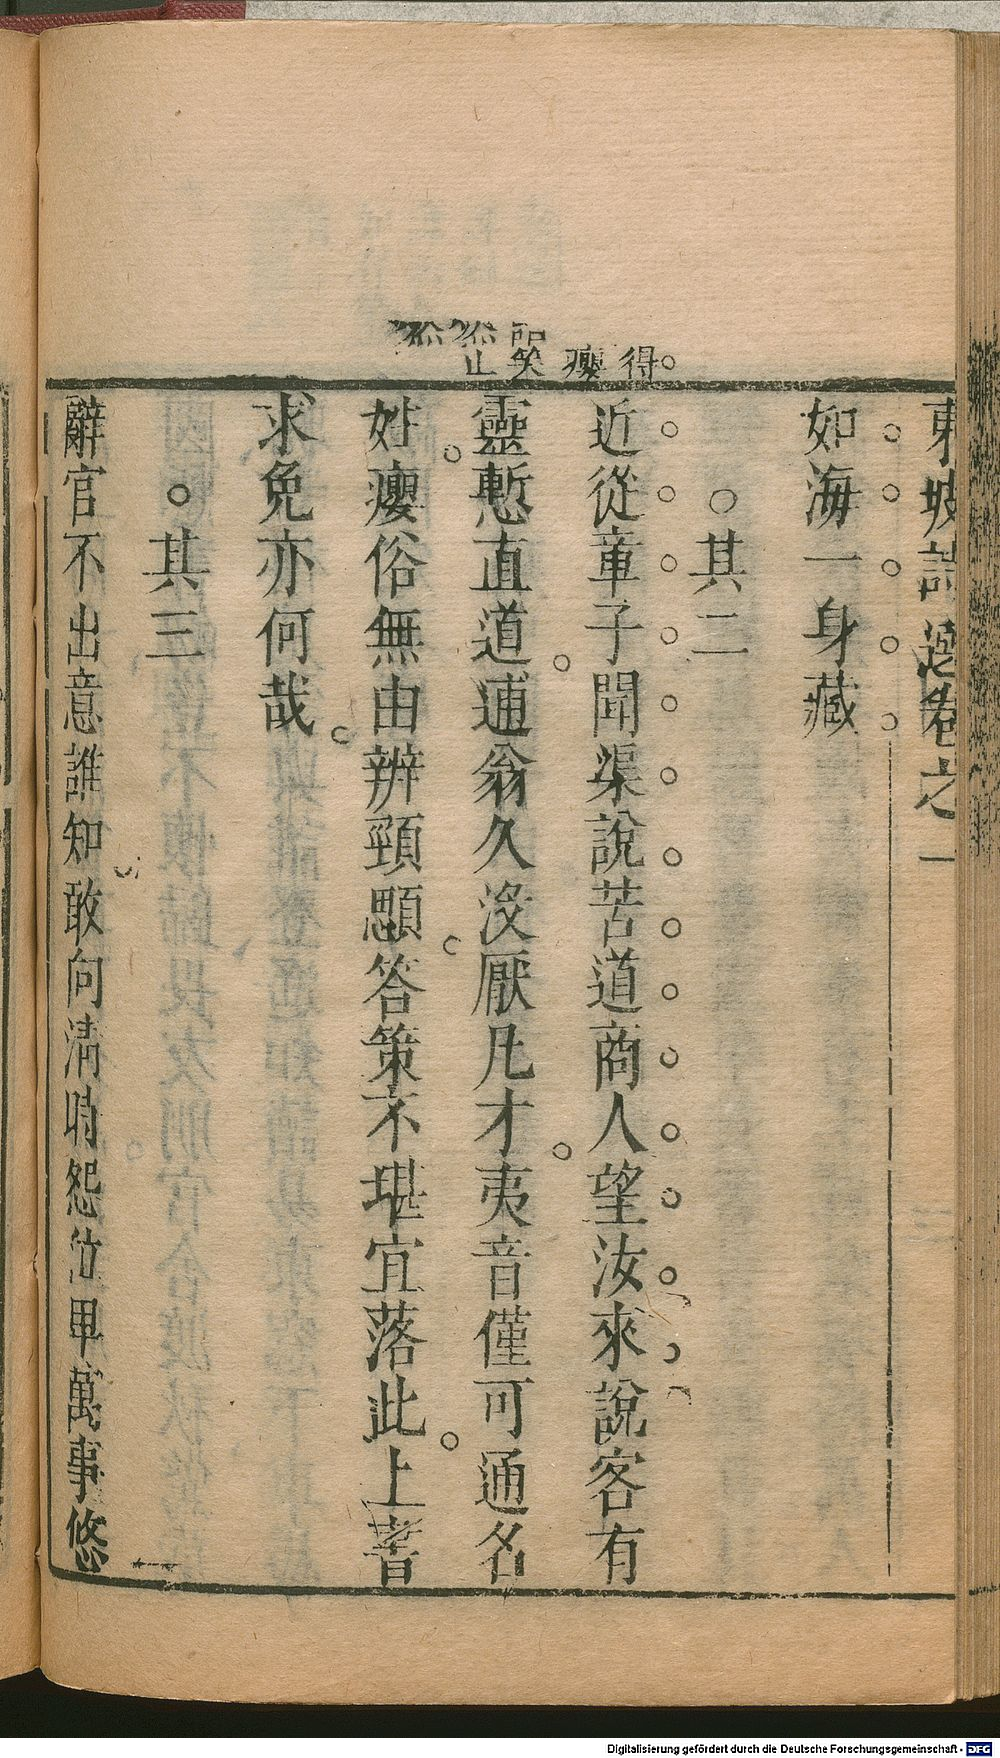 東坡詩選卷之一
如海一身藏
○其二
近從章子聞渠說苦道商人望汝來說客有
靈慙直道逋翁久沒厭凡才夷音僅可通名
姓癭俗無由辨頸顋答策不堪宜落此上書
求免亦何哉
○其三
辭官不出意誰知敢向清時怨位卑萬事悠
得
癭
Digitalisierung gefördert durch die Deutsche Forschungsgemeinschaft - DFG